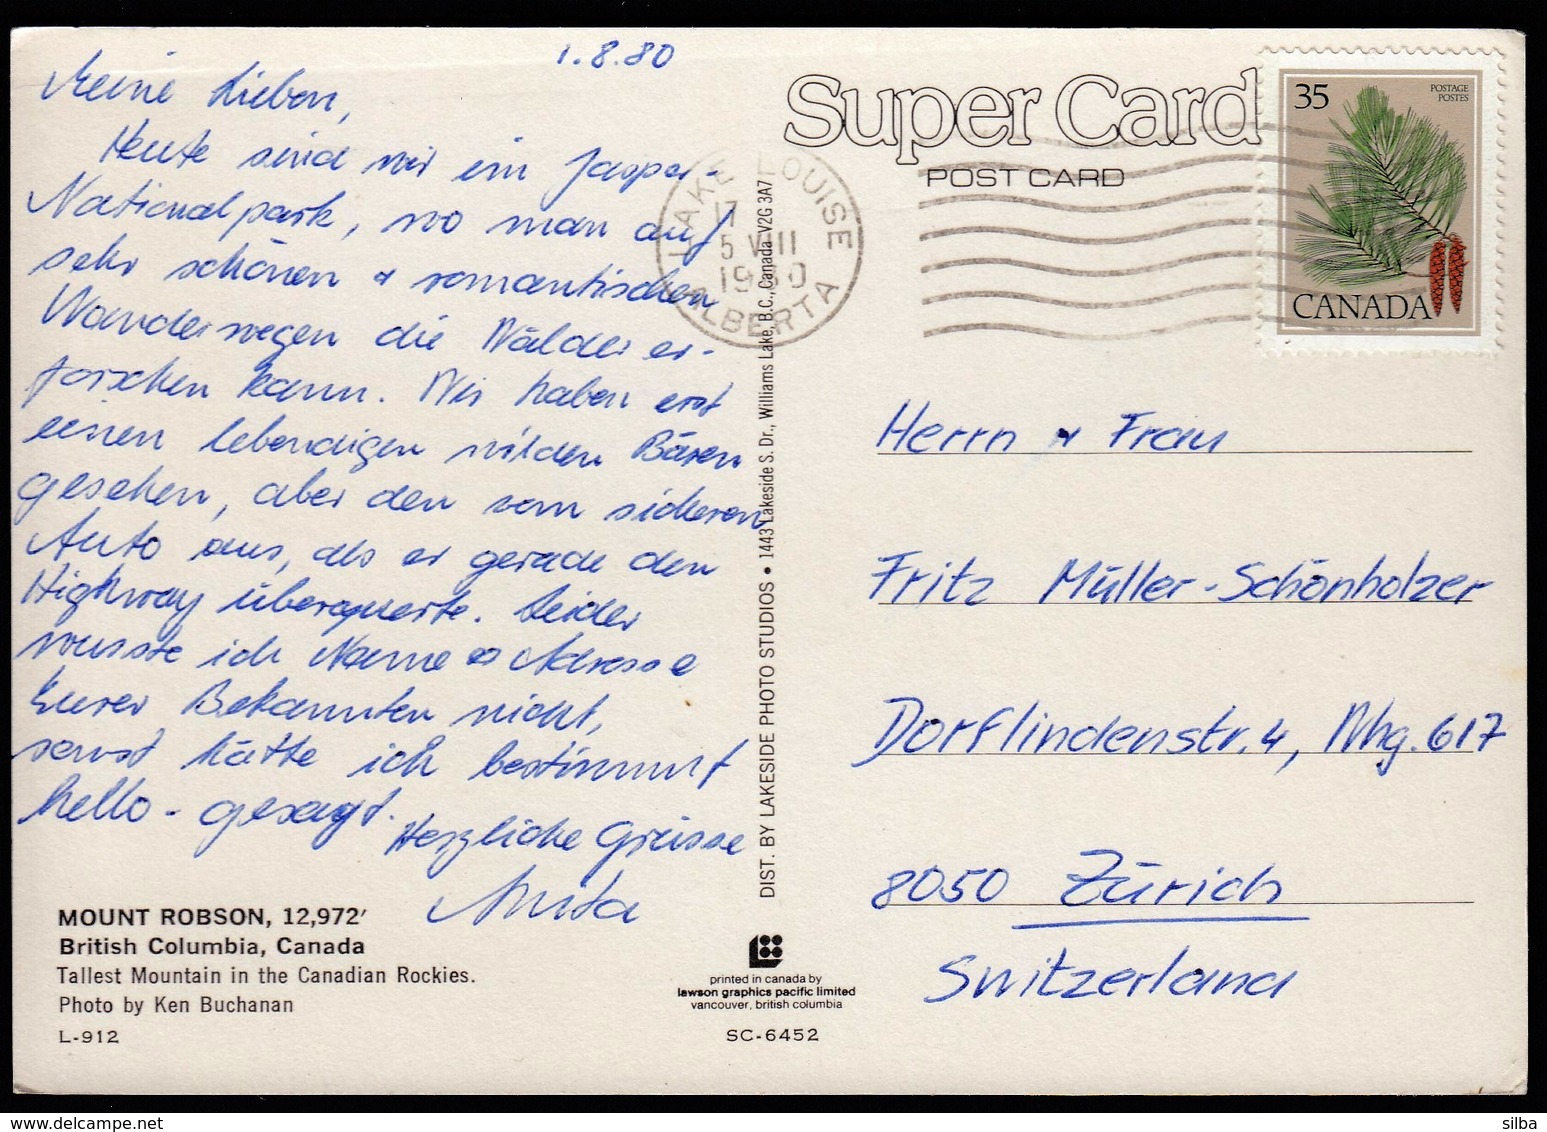 1.8.80
Meine Lieben,
Heute sind wir im Jasper-
Nationalpark, wo man auf
sehr schönen & romantischen
Wanderwegen die Wälder er-
forschen kann. Wir haben erst
einen lebendigen wilden Bären
gesehen, aber den vom sicheren
Auto aus, als er gerade den
Highway überquerte. Leider
wusste ich Name & Adresse
Eurer Bekannten nicht,
sonst hätte ich bestimmt
hello-gesagt.
Herzliche Grüsse
Anita
MOUNT ROBSON, 12,972′
British Columbia, Canada
Tallest Mountain in the Canadian Rockies.
Photo by Ken Buchanan
L-912
DIST. BY LAKESIDE PHOTO STUDIOS • 1443 Lakeside S. Dr., Williams Lake, B.C., Canada V2G 3A7
printed in canada by
lawson graphics pacific limited
vancouver, british columbia
SC-6452
Super Card
POST CARD
LAKE LOUISE
17
5 VIII
1980
ALBERTA
35
POSTAGE
POSTES
CANADA
Herrn & Frau
Fritz Müller-Schönholzer
Dorflindenstr. 4, Whg. 617
8050 Zürich
Switzerland
silba